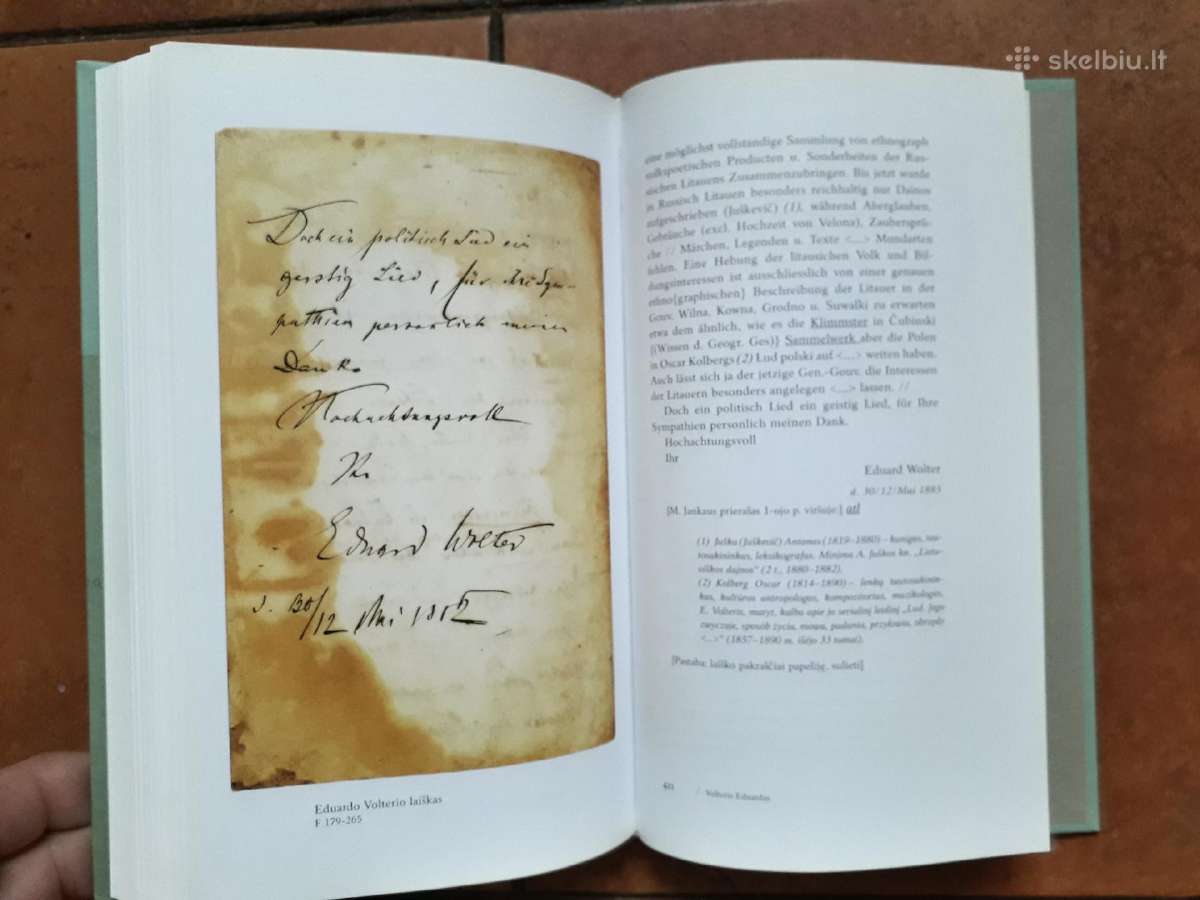 skelbiu.lt
Doch ein politisch Lied ein
garstig Lied, für Ihre Sym-
pathien personlich meinen
Dank.
Hochachtungsvoll
Ihr
Eduard Wolter
d. 30/12 Mai 188
Eduardo Volterio laiškas
F 179-265
eine möglichst vollständige Sammlung von ethnograph
volkspoetischen Producten u. Sonderheiten des Rus-
sischen Litauens Zusammenzubringen. Bis jetzt wurde
in Russisch Litauen besonders reichhaltig nur Dainos
aufgeschrieben (Juškevič) (1), während Aberglauben,
Gebräuche (excl. Hochzeit von Velona), Zaubersprü-
che // Märchen, Legenden u. Texte <...> Mundarten
fehlen. Eine Hebung der litauischen Volk und Bil-
dungsinteressen ist ausschliesslich von einer genauen
ethno{graphischen} Beschreibung der Litauer in der
Gouv. Wilna, Kowna, Grodno u. Suwalki zu erwarten
etwa dem ähnlich, wie es die Klimmster in Čubinski
{(Wissen d. Geogr. Ges)} Sammelwerk aber die Polen
in Oscar Kolbergs (2) Lud polski auf <...> weiten haben.
Auch lässt sich ja der jetzige Gen.-Gouv. die Interessen
der Litauern besonders angelegen <...> lassen. //
Doch ein politisch Lied ein geistig Lied, für Ihre
Sympathien personlich meinen Dank.
Hochachtungsvoll
Ihr
Eduard Wolter
d. 30/12/Mai 1885
[M. Jankaus prierašas 1-ojo p. viršuje:] atl
(1) Juška (Juškevič) Antanas (1819–1880) – kunigas, tau-
tosakininkas, leksikografas. Minima A. Juškos kn. „Lietu-
viškos dainos" (2 t., 1880–1882).
(2) Kolberg Oscar (1814–1890) – lenkų tautosakinin-
kas, kultūros antropologas, kompozitorius, muzikologas.
E. Volteris, matyt, kalba apie jo serialinį leidinį „Lud. Jego
zwyczaje, sposób życia, mowa, podania, przysłowia, obrzędy
<...>" (1857–1890 m. išėjo 33 tomai).
[Pastaba: laiško pakraščiai papešiję, sulieti]
/ Volteris Eduardas